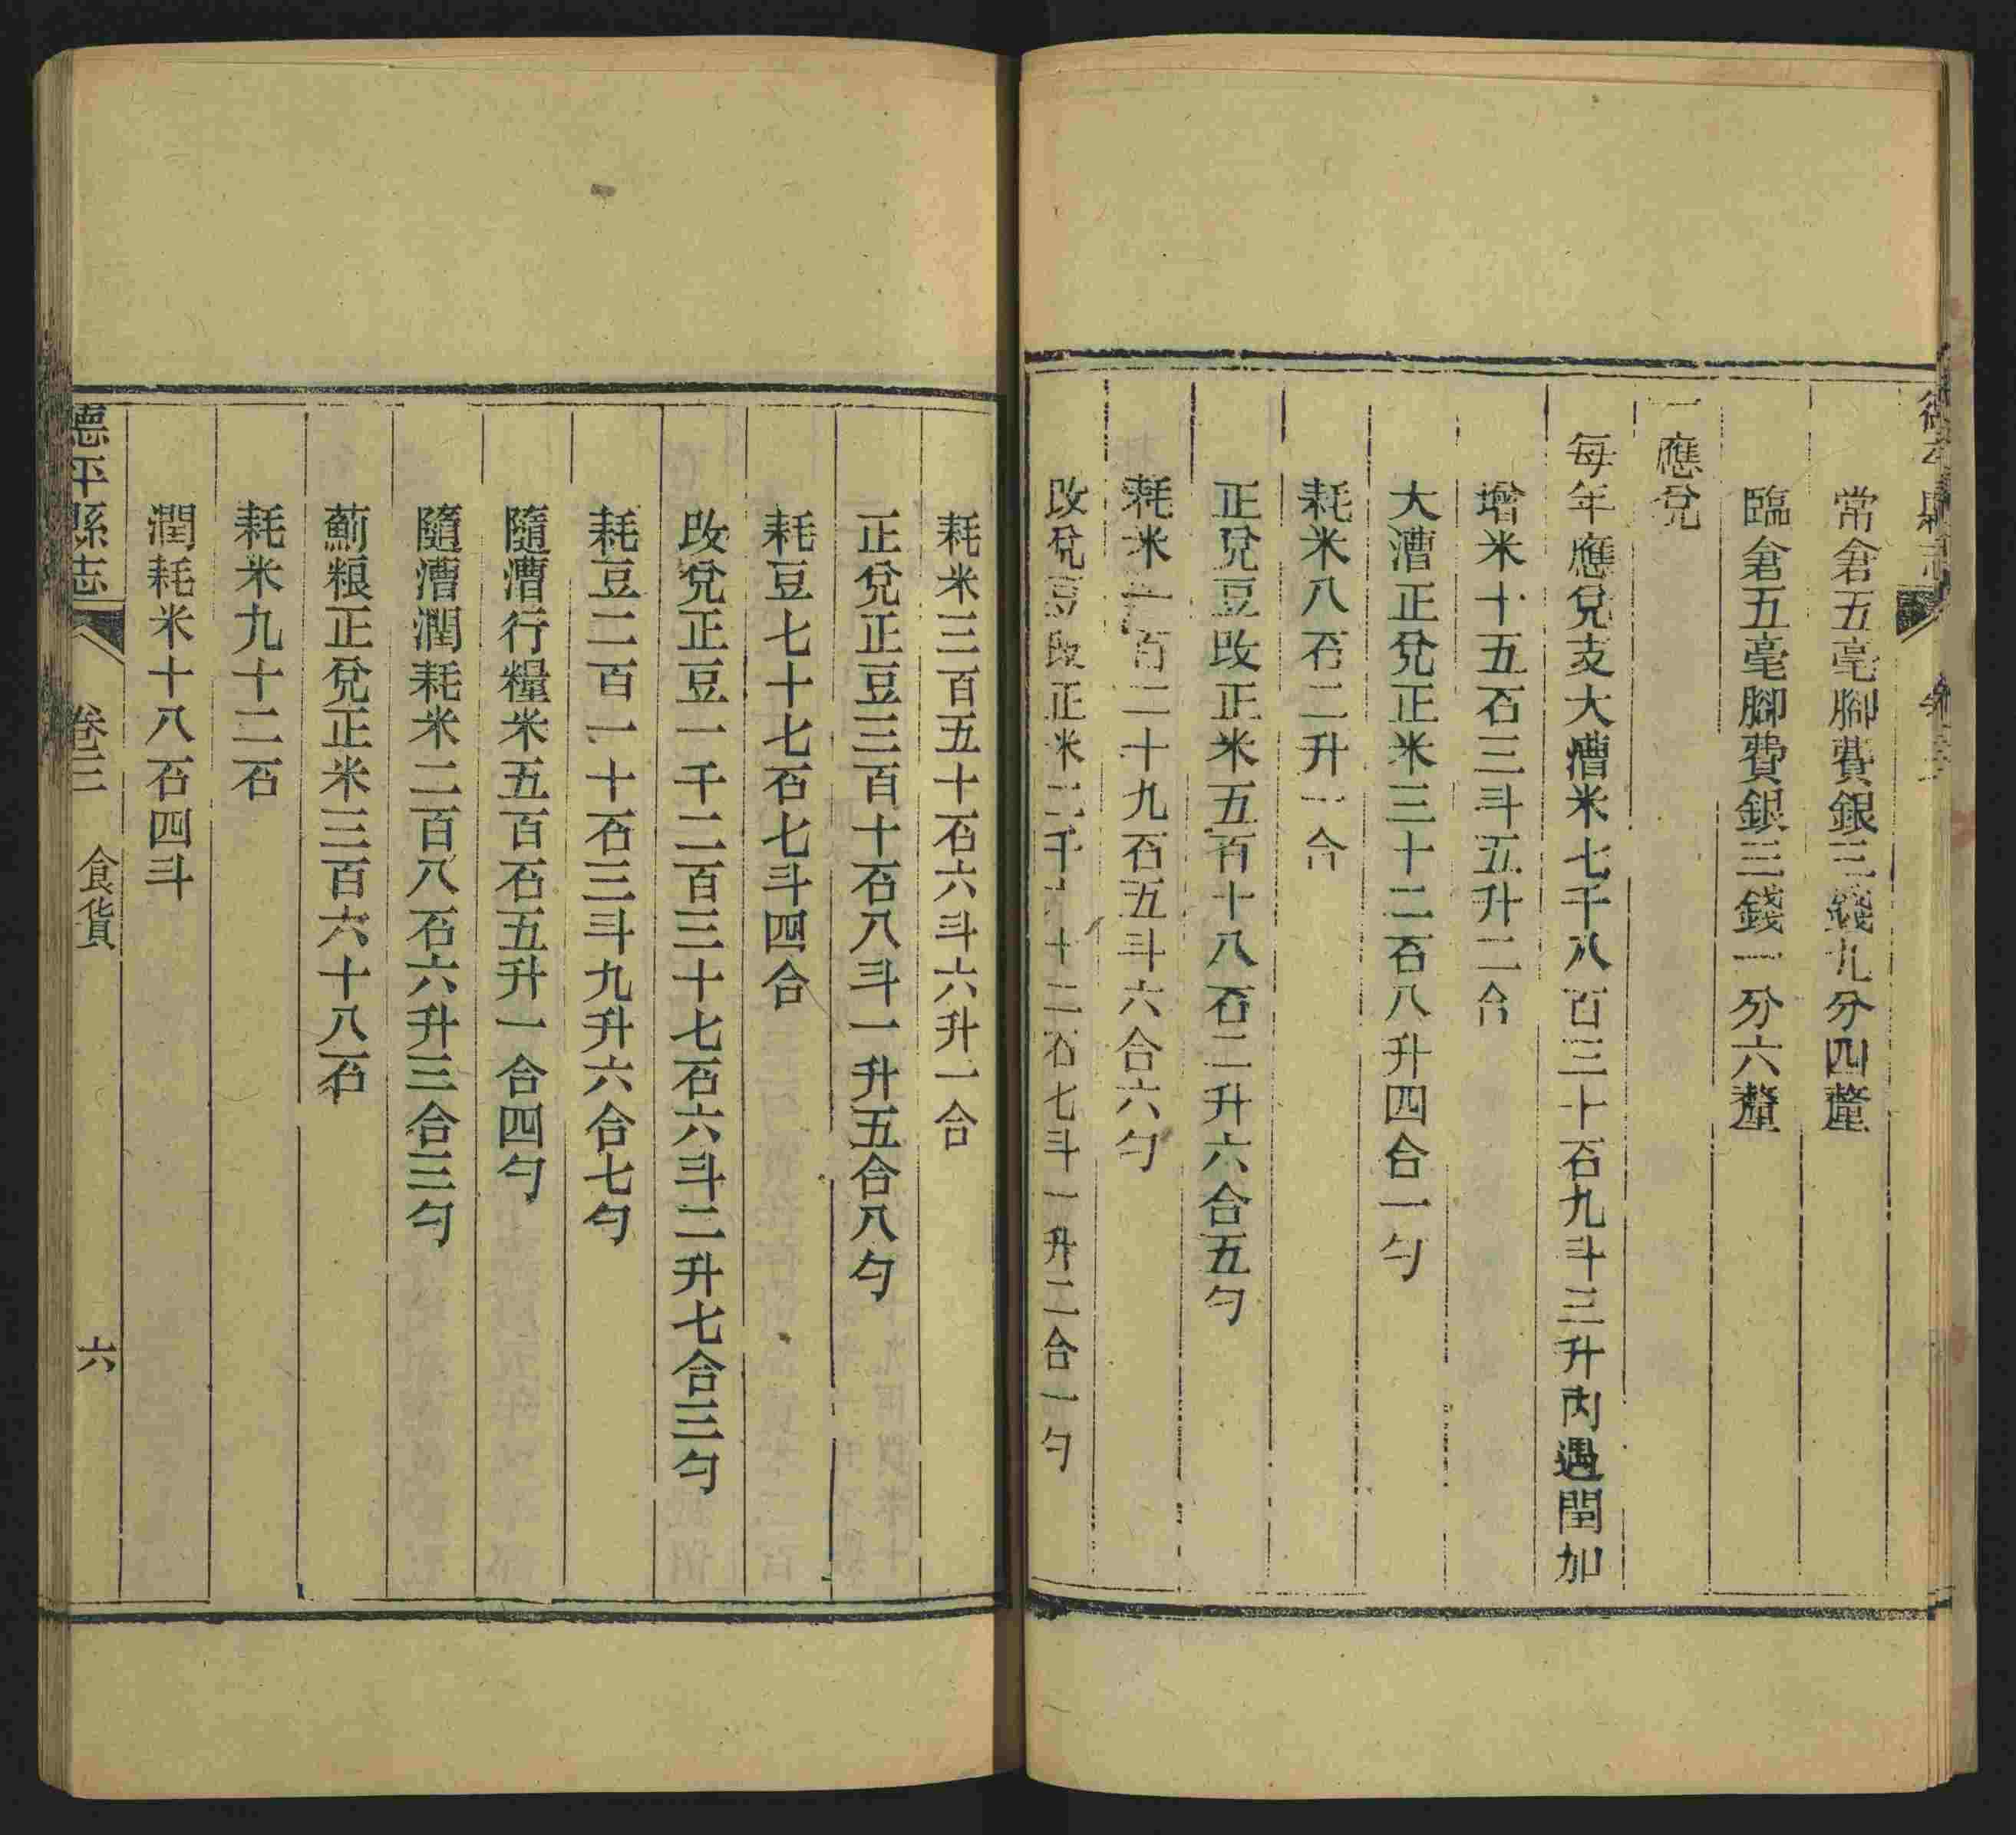 常倉五毫腳費銀三錢九分四釐
臨倉五毫腳費銀三錢一分六釐
一應兌
每年應兌支大漕米七千八百三十石九斗三升內遇閏加
增米十五石三斗五升二合
大漕正兌正米三十二石八升四合一勺
耗米八石二升一合
正兌豆改正米五百十八石二升六合五勺
耗米一百二十九石五斗六合六勺
改兌豆改正米二千十二石七斗一升二合一勺
耗米三百五十石六斗六升一合
正兌正豆三百十石八斗一升五合八勺
耗豆七十七石七斗四合
改兌正豆一千二百三十七石六斗二升七合三勺
耗豆二百一十石三斗九升六合七勺
隨漕行糧米五百石五升一合四勺
隨漕潤耗米二百八石六升三合三勺
薊粮正兌正米三百六十八石
耗米九十二石
潤耗米十八石四斗
德平縣志 卷三 食貨 六